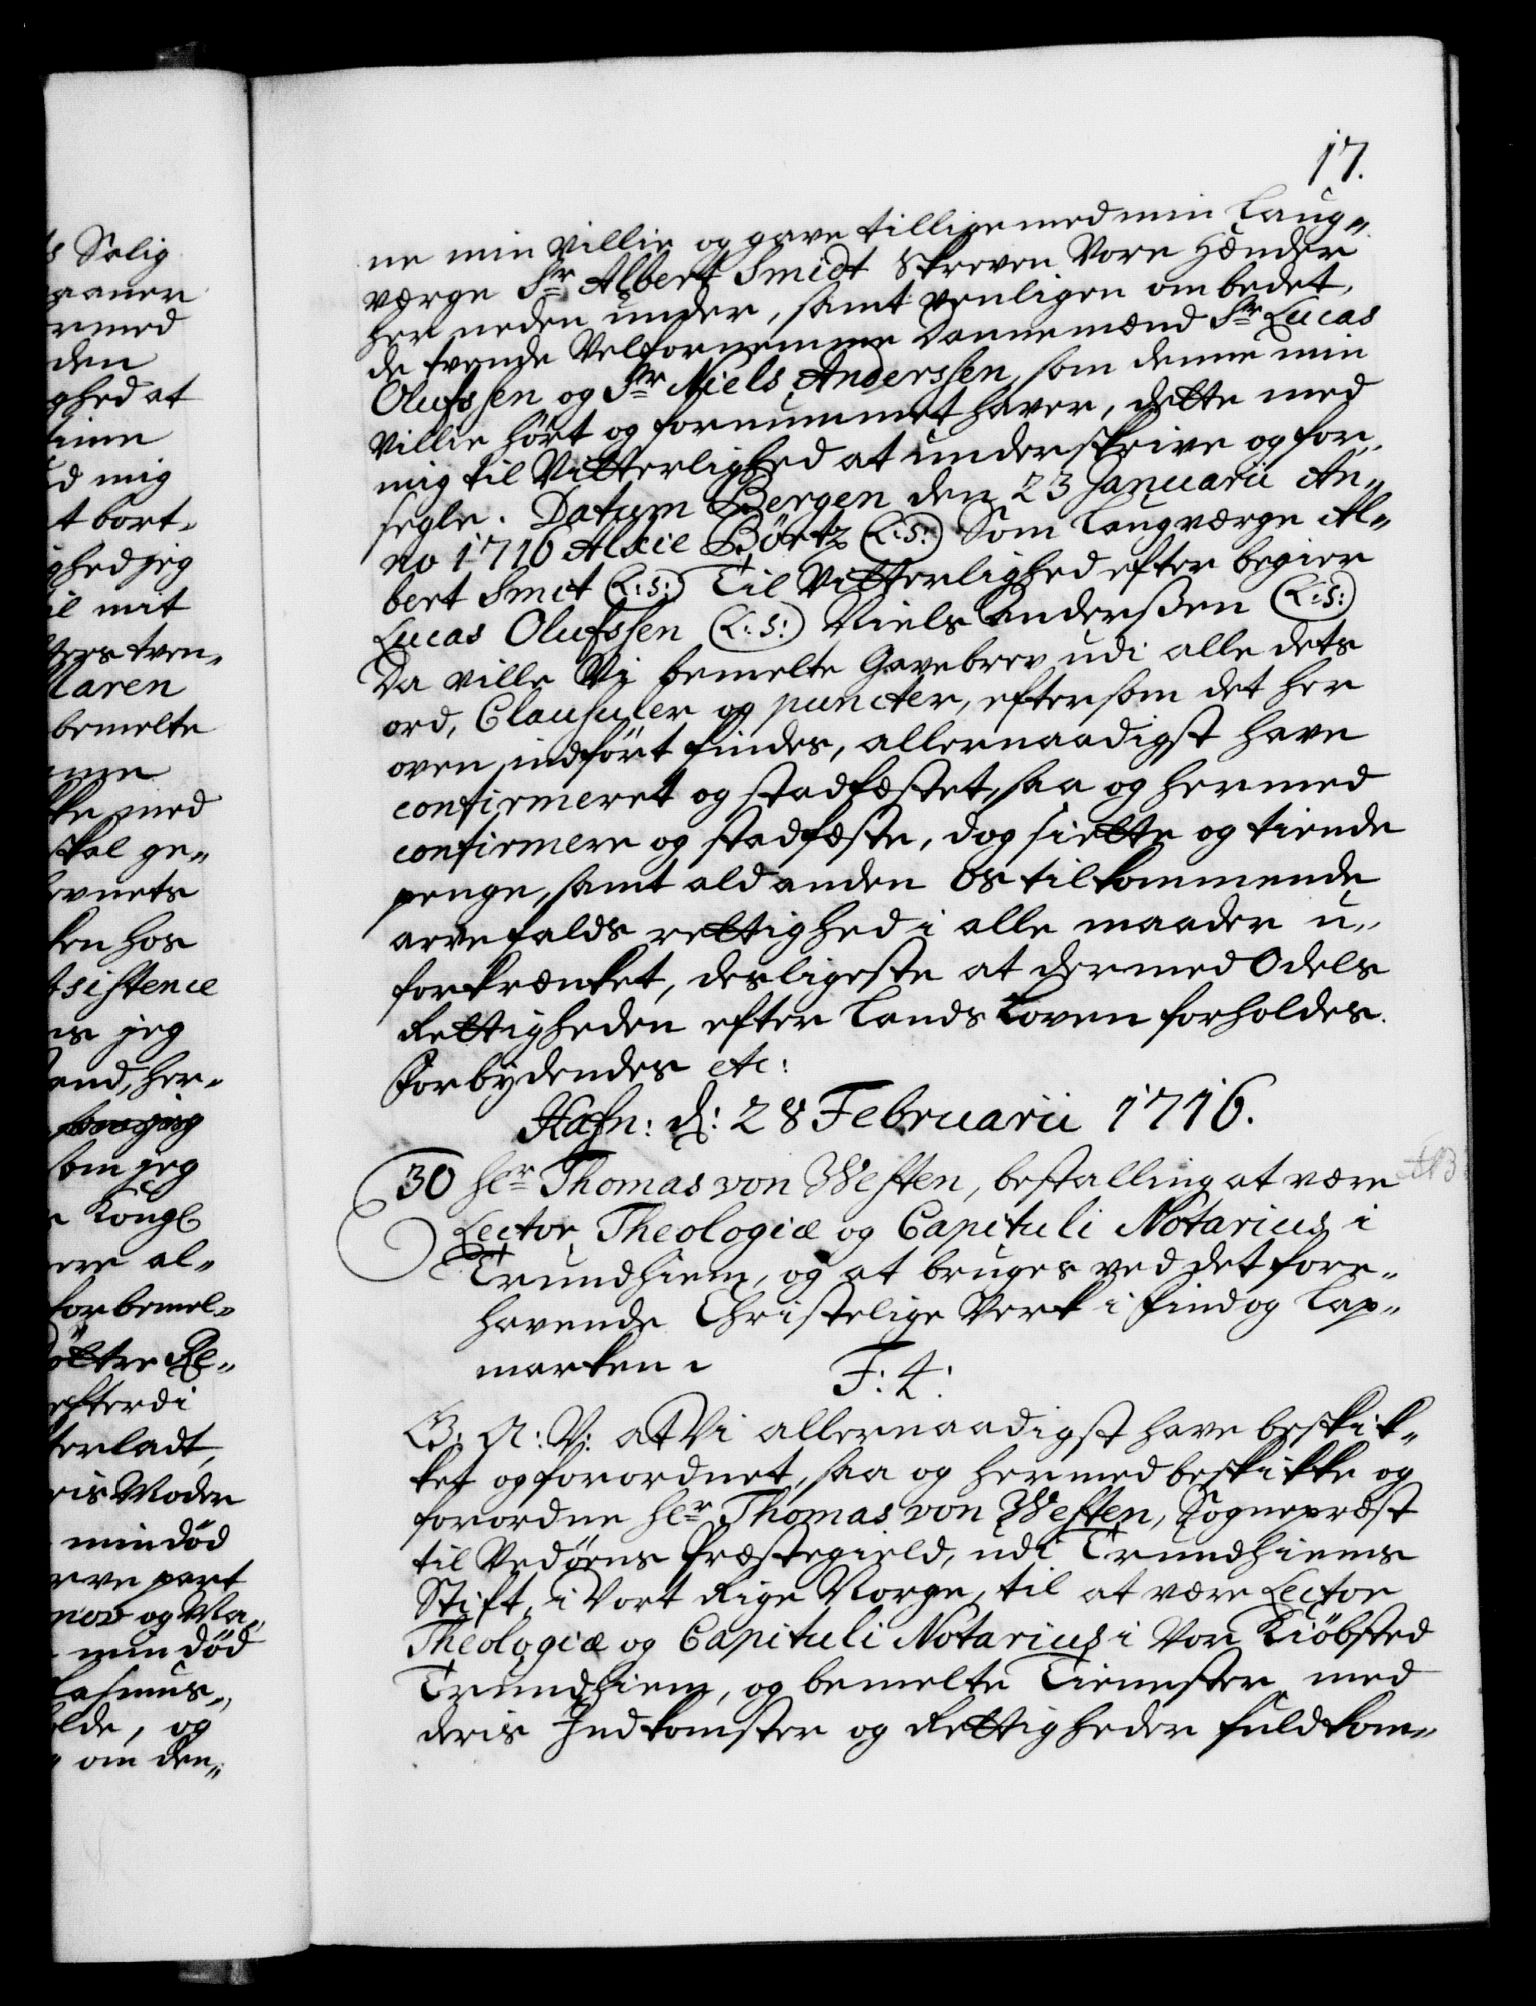 17.
ne min Villie og gave tillige med min Laug„
værge Sr Albert Smidt skreven Vore Hænder
her neden under, samt venligen ombedet,
de tvende Velfornemme Dannemænd Sr Lucas
Olufssen og Sr Niels Anderssen, som denne min
Villie hørt og fornummet haver, dette med
mig til Vitterlighed at underskrive og for„
segle. Datum Bergen den 23 Januarii An„
no 1716 Alxie Börtz (L:S:) Som Laugværge Al„
bert Smit (L:S:) Til Vitterlighed efter begier
Lucas Olufssen (L:S:) Niels Anderssen (L:S:)
Da ville Vi bemelte Gavebrev udi alle dets
ord, Clausuler og puncter, eftersom det her
oven indført findes, allernaadigst have
confirmeret og stadfæstet, saa og hermed
confirmere og stadfæste, dog siette og tiende
penge, samt ald anden Os tilkommende
arvefalds rettighed i alle maader u„
forkrænket, desligeste at dermed Odels
Rettigheden efter Lands Loven forholdes.
Forbydendes etc:
Hafn: d: 28 Februarii 1716.
30 Hr Thomas von Westen, bestalling at være
Lector Theologiæ og Capituli Notarius i
Trundhiem, og at bruges ved det fore„
havende Christelige Verk i Find og Lap„
marken
F: 4:
G: A: V: at Vi allernaadigst have beskik„
ket og forordnet, saa og hermed beskikke og
forordne Hr Thomas von Westen, Sognepræst
til Vedöens Præstegield, udi Trundhiems
Stift, i Vort Rige Norge, til at være Lector
Theologiæ og Capituli Notarius i Vor Kiöbsted
Trundhiem, og bemelte Tienester med
deris Indkomster og Rettigheder fuldkom„
s Salig
aaner
rmed
den
ghed at
mine
d mig
t bort„
ghed jeg
il mit
ters tven„
Maren
bemelte
ke med
skal ge„
evnets
ken hos
sistence
ns jeg
and, her„
som jeg
Kongl
ere al„
forbemel„
efterdi
terladt,
ris Moder
min död
rve part
nov og Ma„
min död
Rasmus„
olde, og
om den„